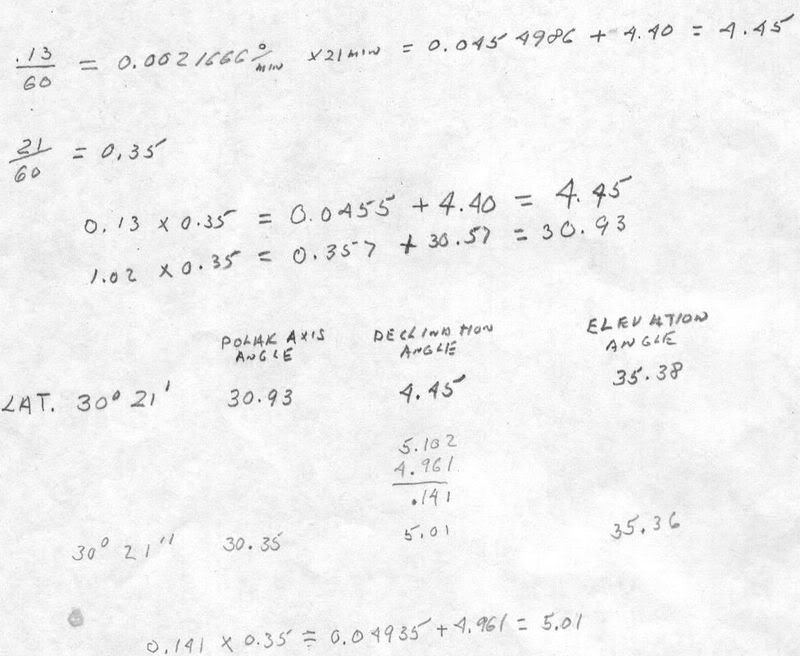 .13/60 = 0.0021666°/MIN ×21 MIN = 0.0454986 + 4.40 = 4.45
21/60 = 0.35
0.13 × 0.35 = 0.0455 + 4.40 = 4.45
1.02 × 0.35 = 0.357 + 30.57 = 30.93
POLAR AXIS ANGLE DECLINATION ANGLE ELEVATION ANGLE
LAT. 30° 21' 30.93 4.45 35.38
5.102
4.961
.141
30° 21'' 30.35 5.01 35.36
0.141 × 0.35 = 0.04935 + 4.961 = 5.01